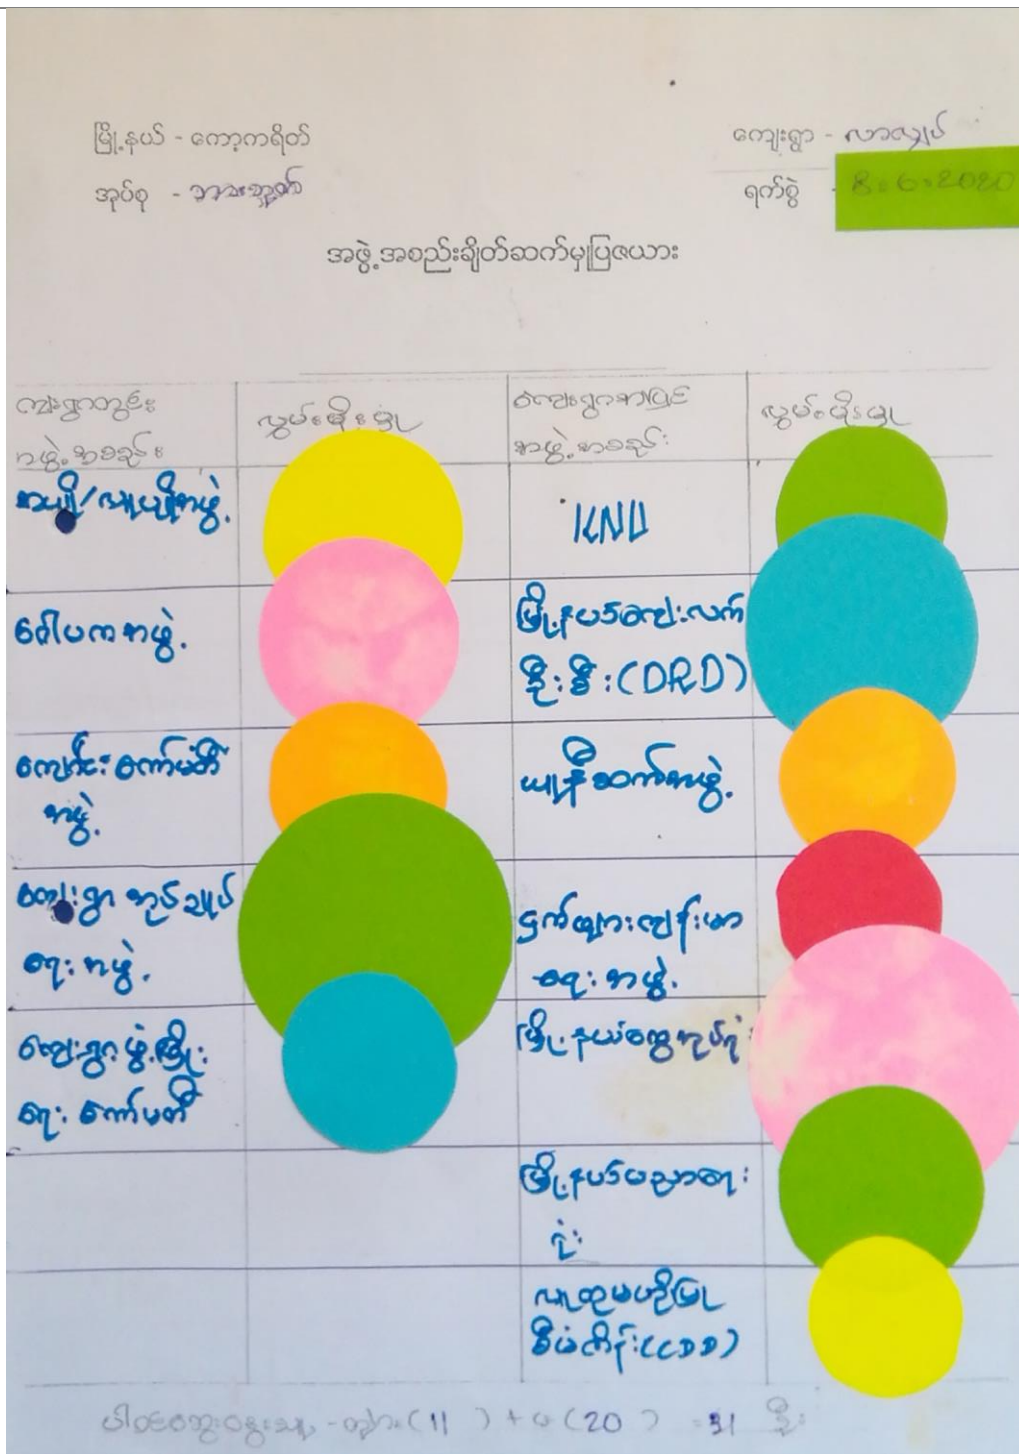 မြို့နယ် - ကော့ကရိတ်
ကျေးရွာ - လာလျှပ်
အုပ်စု -
ရက်စွဲ - 8.6.2020
အဖွဲ့အစည်းချိတ်ဆက်မှုပြဇယား
ကျေးရွာတွင်း
အဖွဲ့အစည်း
လွှမ်းမိုးမှု
ကျေးရွာအပြင်
အဖွဲ့အစည်း
လွှမ်းမိုးမှု
အပျို/လူပျိုအဖွဲ့
KNU
ဂေါပကအဖွဲ့
မြို့နယ်ကျေးလက်
ဦးစီး(DRD)
ကျောင်းကော်မတီ
အဖွဲ့
ယူနီဆက်အဖွဲ့
ကျေးရွာအုပ်ချုပ်
ရေးအဖွဲ့
ငှက်ဖျားကျန်းမာ
ရေးအဖွဲ့
ကျေးရွာဖွံ့ဖြိုး
ရေးကော်မတီ
မြို့နယ်ထွေအုပ်ရုံး
မြို့နယ်ပညာရေး
ရုံး
လူထုမဟိုပြု
စီမံကိန်း(CDD)
ပါဝင်ဆွေးနွေးသူ - ကျား(11) + မ(20) = 31 ဦး